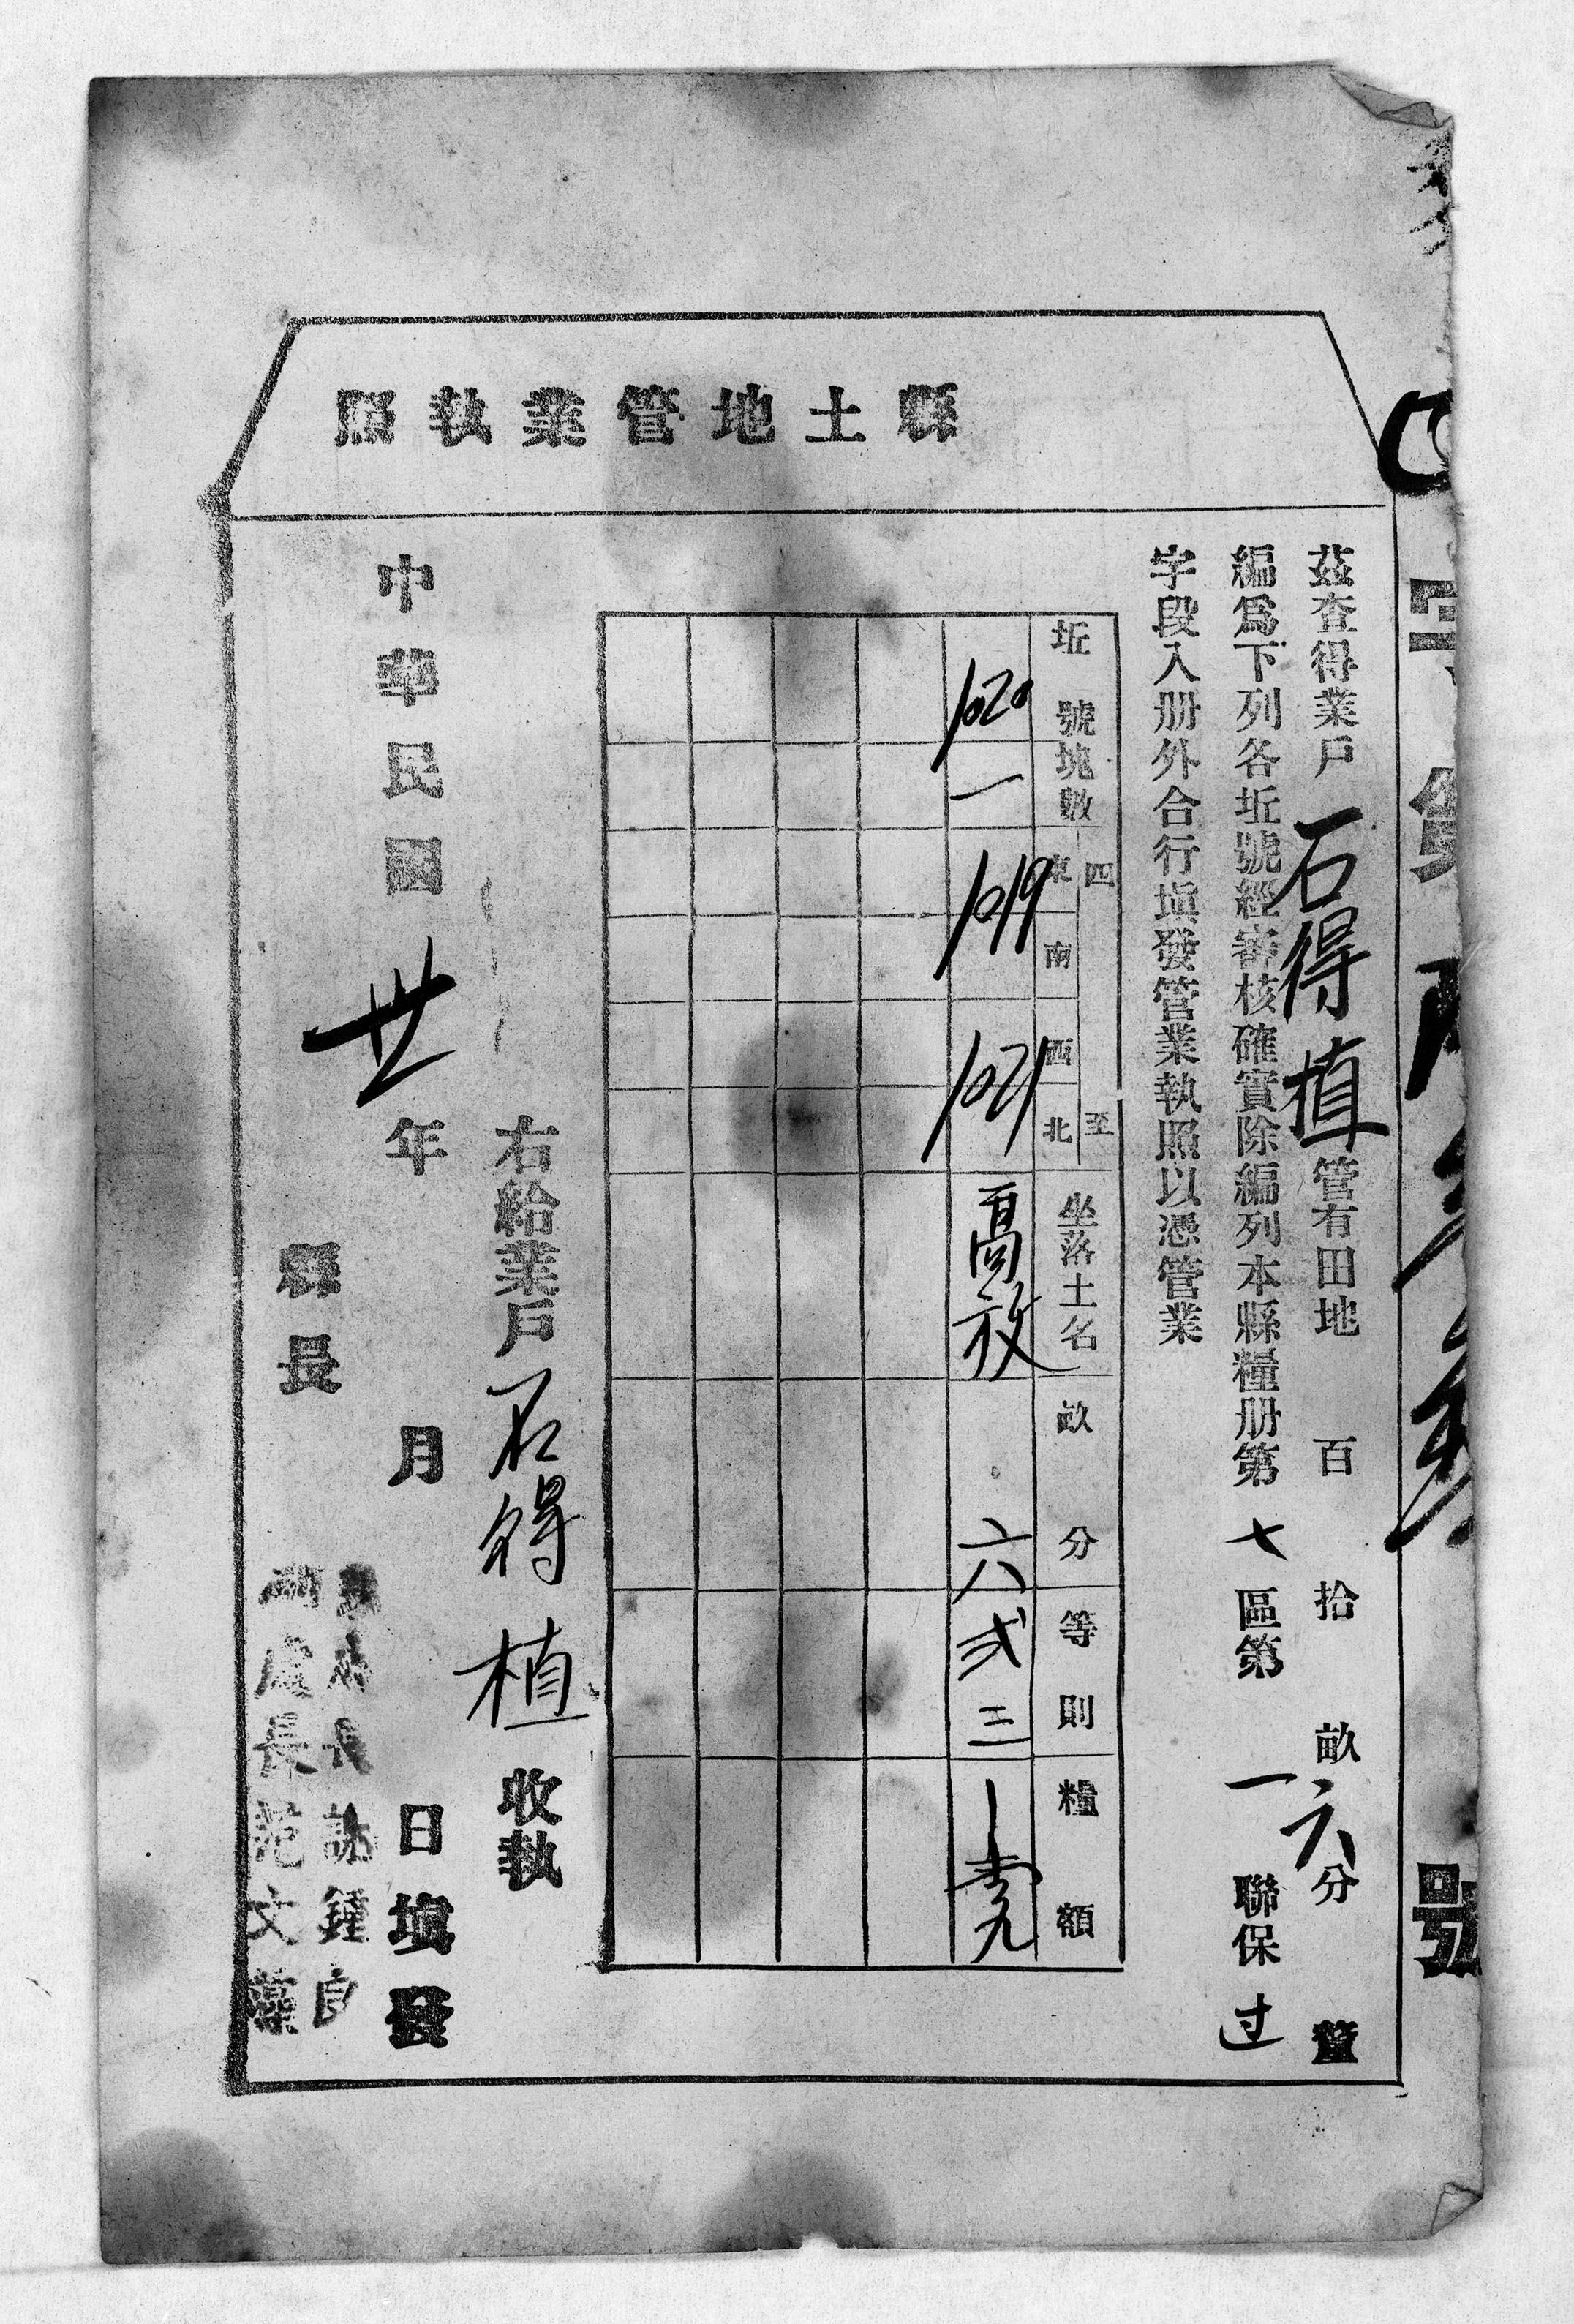 縣土地管業執照
字第號
茲查得業戶石得植管有田地 百 拾 畝六分 釐
編爲下列各坵號經審核確實除編列本縣糧册第七區第一聯保过
字段入册外合行填發管業執照以憑管業
坵號 塊數 四至 東 南 西 北 坐落土名 畝 分 等則 糧額
1020 一 1019 1021 高放 六 弍 三
右給業戶石得植收執
中華民國卅年 月 日填發
縣長
長 鍾良
處長范文藻